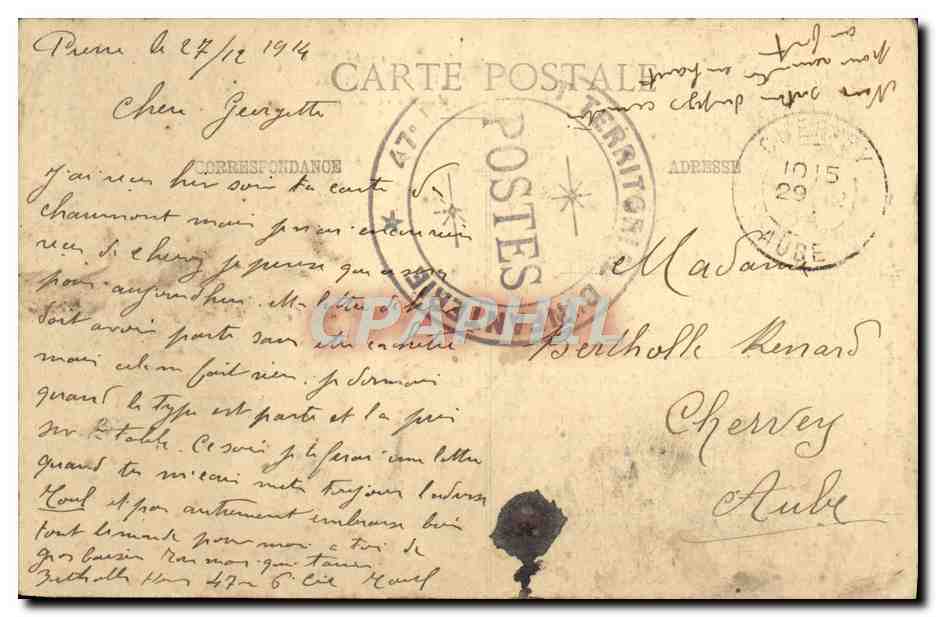 Pierre le 27/12 1914
CARTE POSTALE
Chere Georgette
CORRESPONDANCE
ADRESSE
J'ai reçu hier soir ta carte de
chaumont mais je n'ai encore rien
reçu de chervey je pense que ce sera
pour aujourd'hui. Ma lettre de
doit avoir parti sans être
mais cela ne fait rien. je dormais
quand le type est parti et l'a pris
sur la table. Ce soir je te ferai une lettre
quand tu m'ecris mets toujours l'adresse
Toul et pas autrement embrasse bien
tout le monde pour moi a toi de
gros baisers ton mari qui t'aime
Bertholle 47e 6e Cie Toul
47e
TERRITORIAL
D'INFANTERIE
POSTES
CHERVEY
10 15
29
AUBE
Madame
Bertholle Renard
Chervey
Aube
CPAPHIL